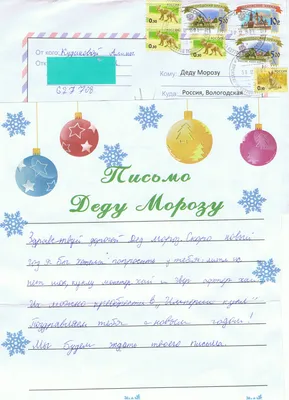 От кого Кудиновой Алины
Откуда
627708
Кому: Деду Морозу
Куда: Россия, Вологодская
Письмо
Деду Морозу
Здравствуй дорогой Дед мороз. Скоро новый
год Я бы хотела попросить у тебя
куклу монстер хай и
их можно преобрести в Империи кукол
Поздравляем тебя с новым годом!
Мы будем ждать твоего письма.